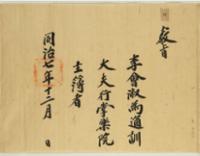 敎旨
李會淑爲通訓
大夫行掌樂院
主簿者
同治七年十二月 日